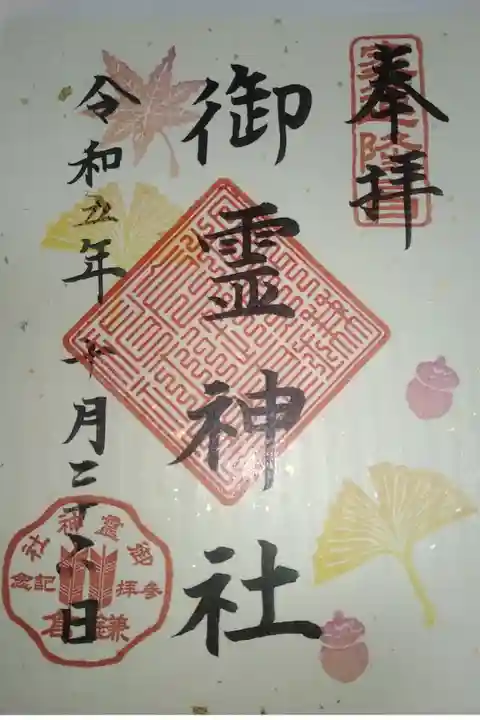 奉拝
家運隆昌
御霊神社
令和五年十月二十六日
御霊神社
参拝記念
鎌倉